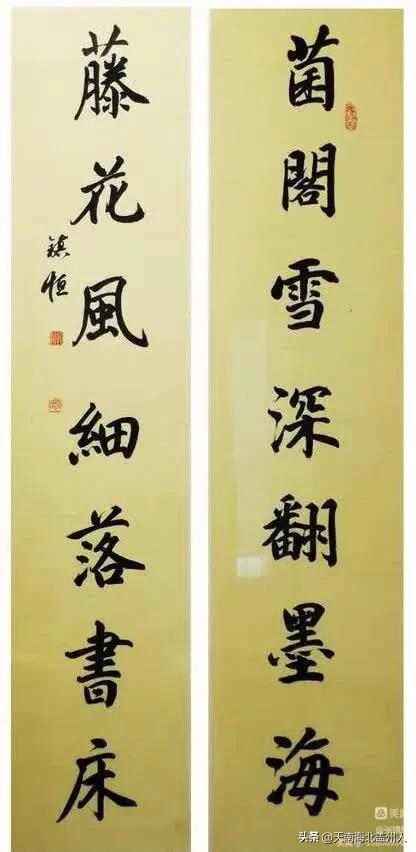 菌閣雪深翻墨海
藤花風細落書床
鎮恒
头条 @天南海北盖州人